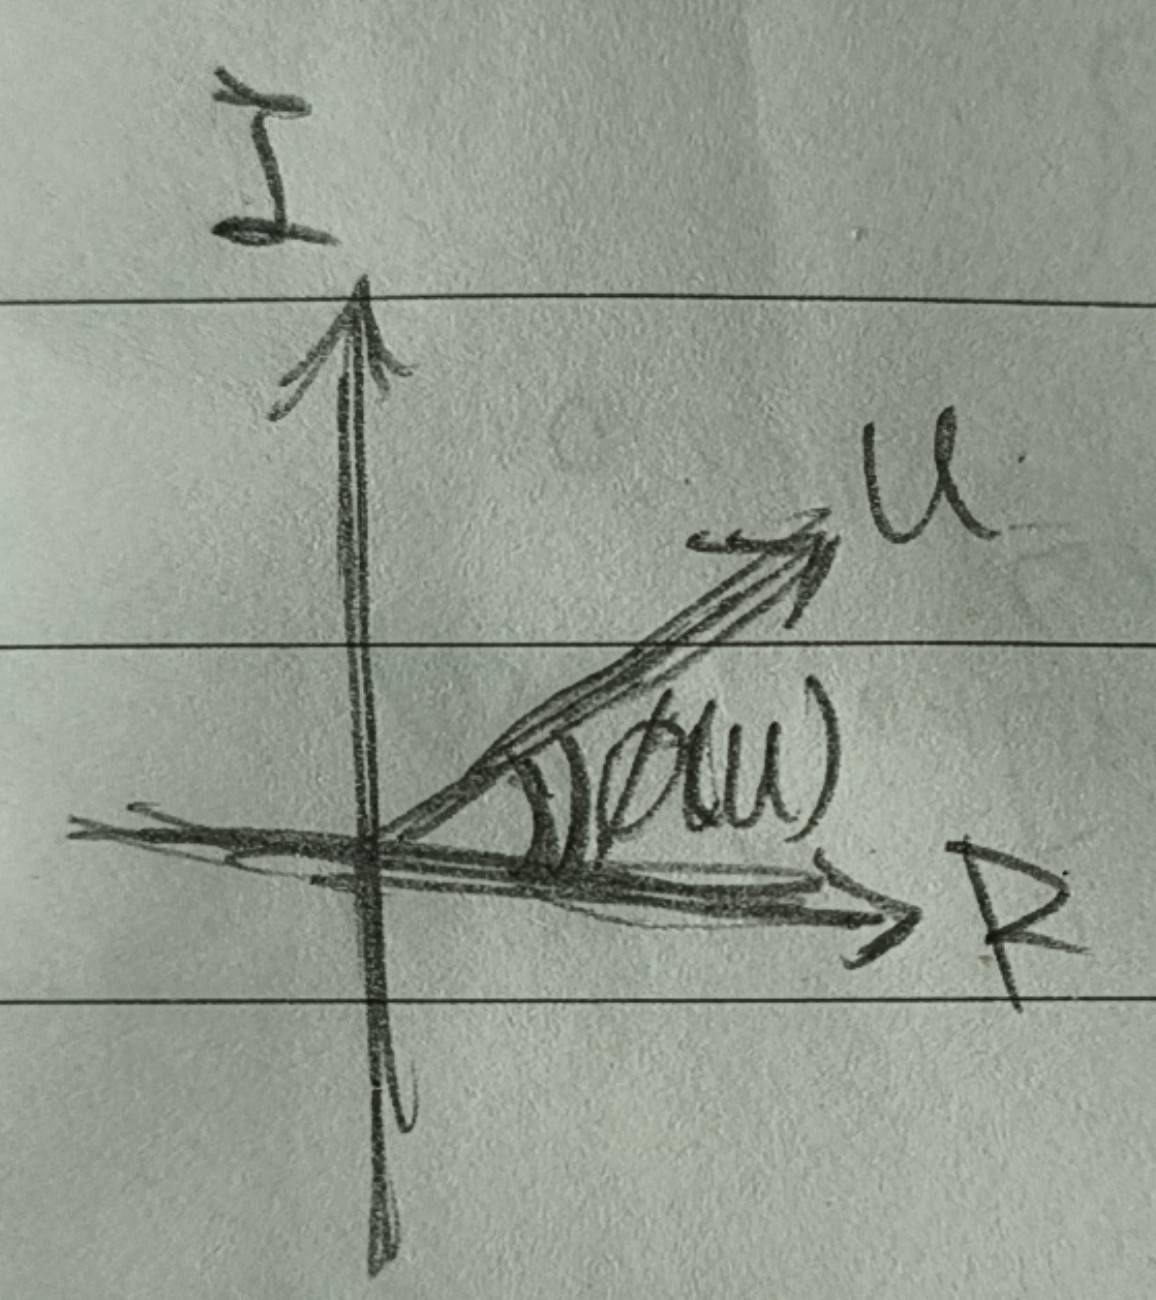 I
U
ϕ(u)
R